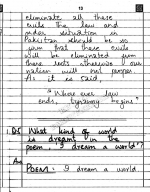 13
eliminate all these
evils the law and
order situation in
Pakistan should be so
firm that these evils
will be eliminated from
there roots otherwise our
nation will not prosper.
As it is said;
"Where ever law
ends, tyranny begins"
Q5 What kind of world
is dreamt in the
poem "I dream a world"?
Ans
POEM: I dream a world